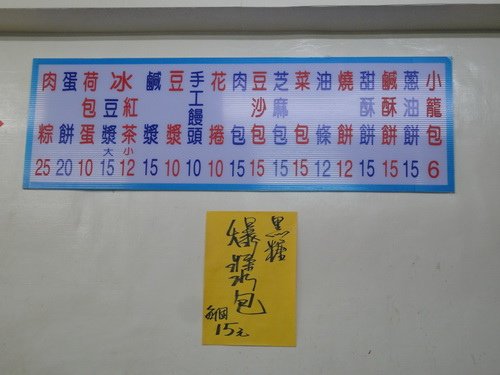 小籠包 6
蔥油餅 15
鹹酥餅 15
甜酥餅 15
燒餅 12
油條 12
菜包 15
芝麻包 15
豆沙包 15
肉包 15
花捲 10
手工饅頭 10
豆漿 10
鹹漿 15
冰
紅茶 小 12
豆漿 大 15
荷包蛋 10
蛋餅 20
肉粽 25
黑糖
爆漿包
每個
15元